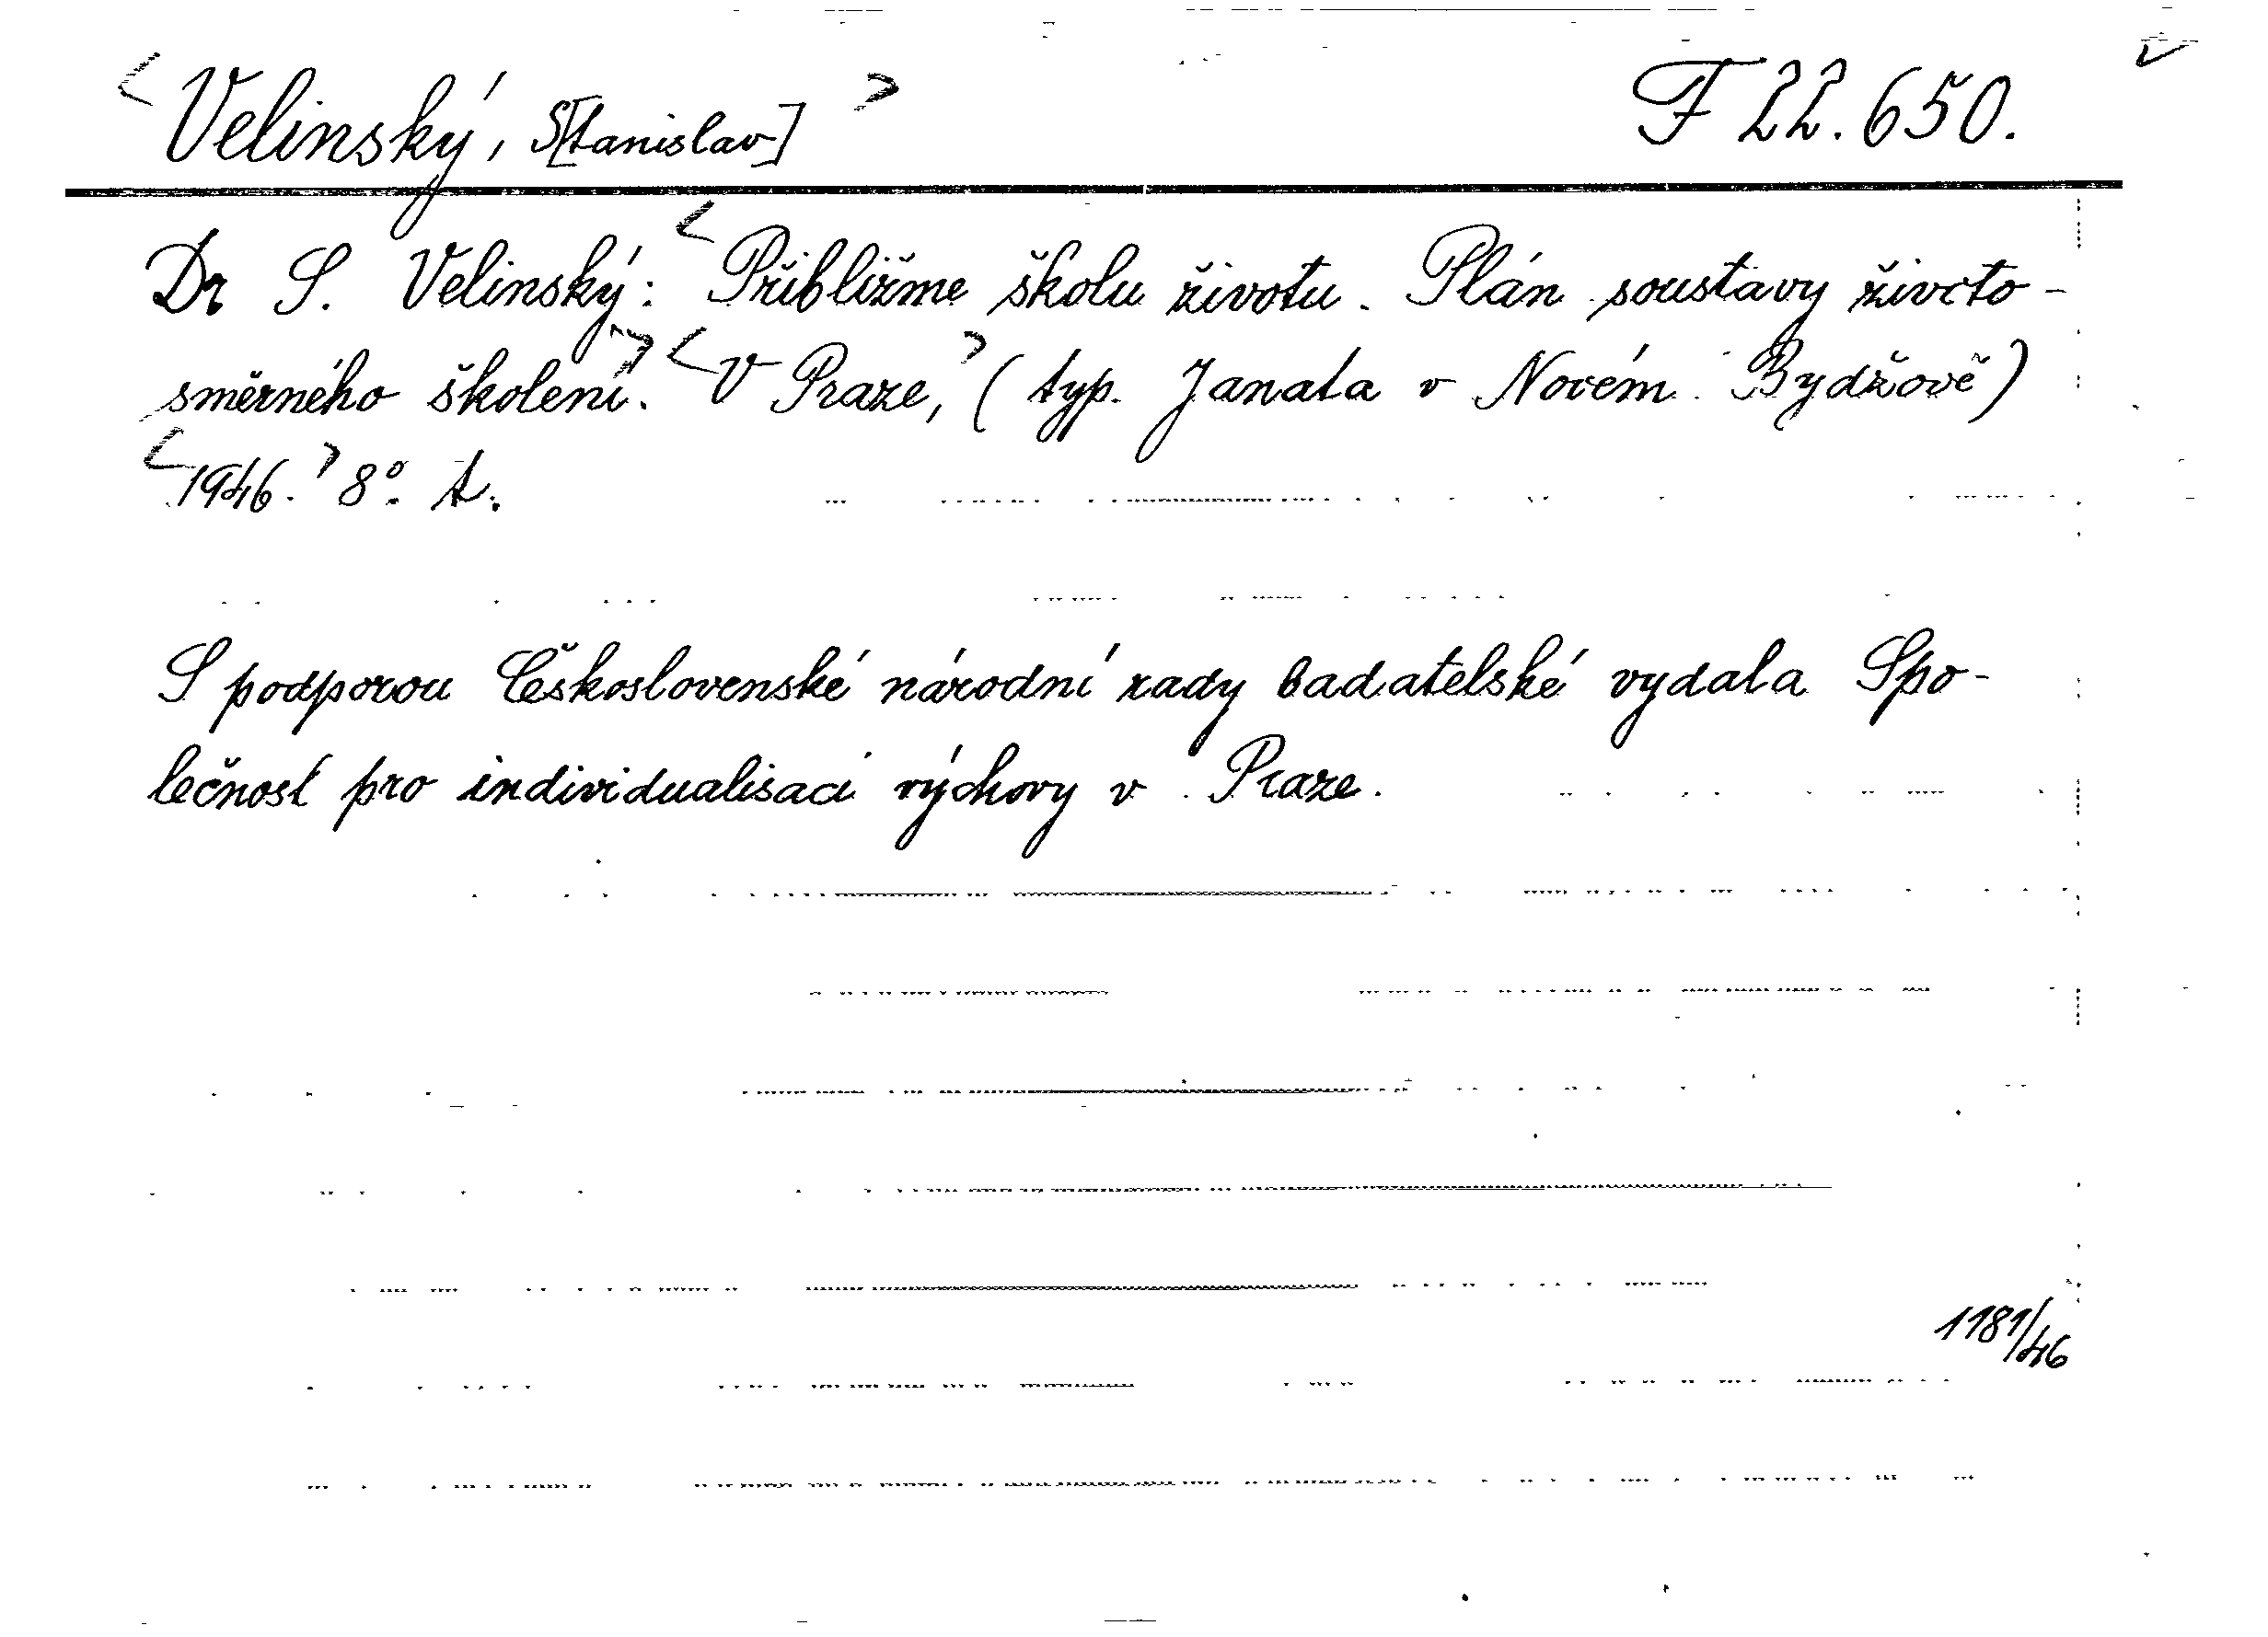 <Velinský, S[tanislav]> F 22.650.
Dr S. Velinský: <Přibližme školu životu. Plán soustavy životo-
směrného školení.> <V Praze,> (typ. Janata v Novém Bydžově)
<1946.> 8°. A.
S podporou Československé národní rady badatelské vydala Spo-
lečnost pro individualisaci výchovy v Praze.
1181/46